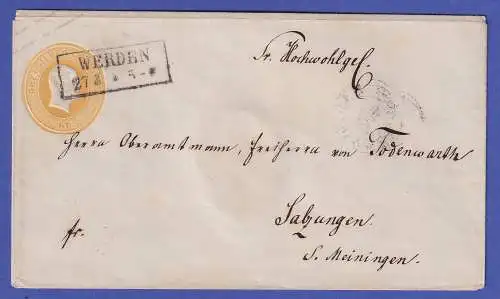 WERDEN
27 3 * 5-*
Sr. Hochwohlgeb.
Herrn Oberamtmann, Freiherrn von Todenwarth
Salzungen.
fr.
S. Meiningen.